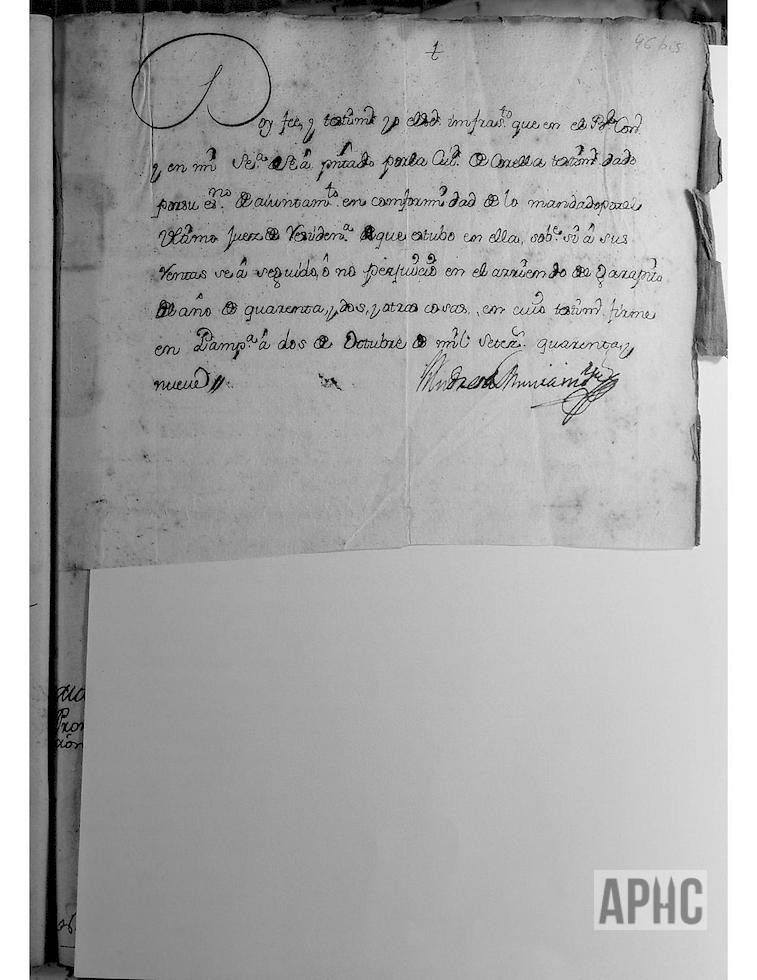 96 bis
Doy fee, y testimº yo el Secº infrasto que en el Rl Conº
y en mi Seª Se â pntado por la Ciud de Corella testimº dado
por su esno de aiuntamto en conformidad de lo mandado por el
Vltimo Juez de Residenª que estubo en ella, sobre si â sus
Rentas se â seguido, ô no perjuicio en el arriendo de
del año de quarenta, y dos, y otras cosas, en cuio testimº firme
en Pampª â dos de Octubre de mil setezs quarenta, y
nueue
APHC